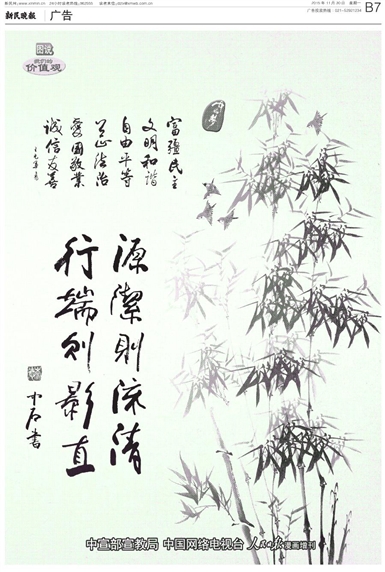 新民晚报
广告
B7
图说
我们的
价值观
富强民主
文明和谐
自由平等
公正法治
爱国敬业
诚信友善
源洁则流清
行端则影直
中石书
中宣部宣教局 中国网络电视台 人民日报漫画增刊